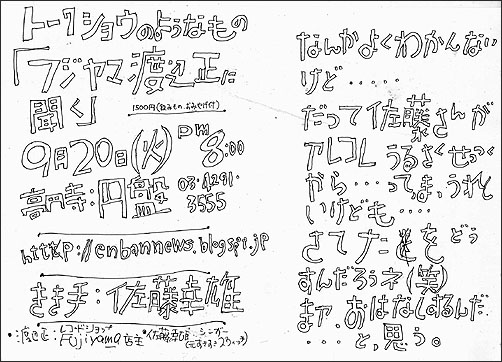 トークショウのようなもの
「フジヤマ渡辺正に
聞く」
1500円(飲みもの、おみやげ付)
9月20日(火) PM 8:00
高円寺:円盤
http://enbannews.blogspot.jp
きき手:佐藤幸雄
・渡辺正:レコードショップ
Fujiyama店主
・佐藤幸雄・シンガー
なんかよくわかんない
けど・・・・・
だって佐藤さんが
アレコレ うるさくせっつく
から・・・ってま、うれし
いけども・・・・
さてナニをどう
すんだろうネ(笑)
まァ、おはなしするんだ
・・・と、思う。